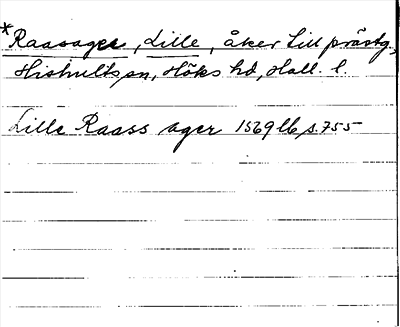 *Raasager, Lille, åker till prästg.,
Hishults sn, Höks hd, Hall. l.
Lille Raass ager 1569 lb s. 755